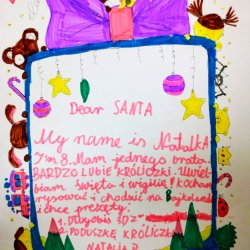 Dear SANTA
My name is NATALKA
I'm 8. Mam jednego brata.
BARDZO LUBIĘ KRÓLICZKI. Uwiel-
biam święta i wigilię. Kocham
rysować i chodzić na
i chcę prezęty:
1. 3DZ
2. PODUSZKĘ KRÓLICZEK
NATALIA D